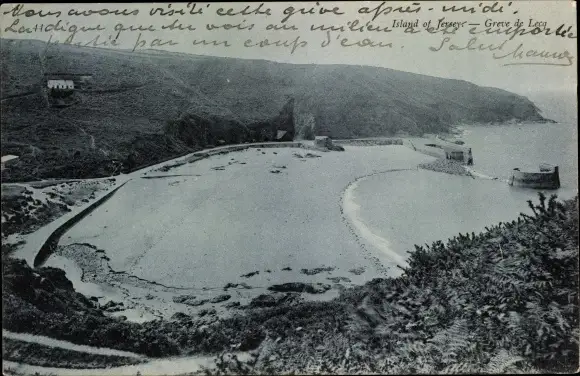 Nous avons visité cette grêve après-midi.
Island of Jersey — Greve de Lecq
La digue que tu vois au milieu a été emportée
en partie par un coup d'eau. Salut